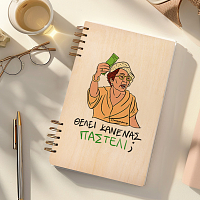 ΘΕΛΕΙ ΚΑΝΕΝΑΣ
ΠΑΣΤΕΛΙ;